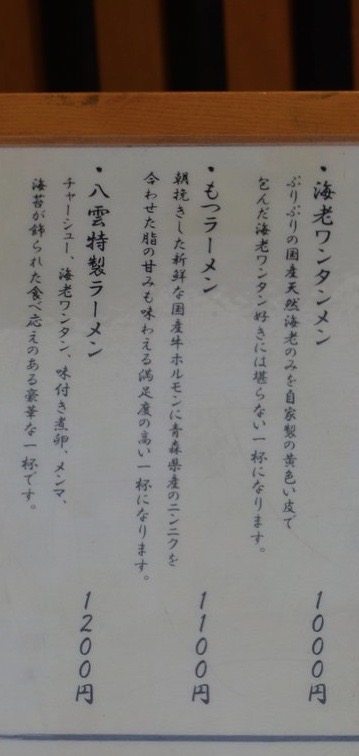 ・海老ワンタンメン
ぷりぷりの国産天然海老のみを自家製の黄色い皮で
包んだ海老ワンタン好きには堪らない一杯になります。
1000円
・もつラーメン
朝挽きした新鮮な国産牛ホルモンに青森県産のニンニクを
合わせた脂の甘みも味わえる満足度の高い一杯になります。
1100円
・八雲特製ラーメン
チャーシュー、海老ワンタン、味付き煮卵、メンマ、
海苔が飾られた食べ応えのある豪華な一杯です。
1200円